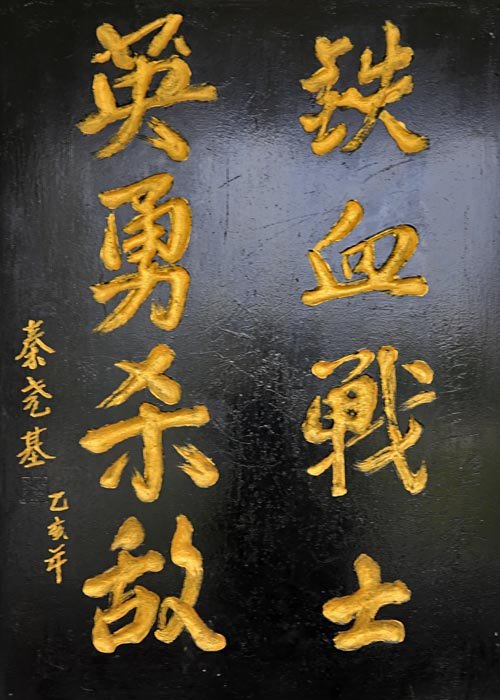 鉄血戦士
英勇杀敌
秦尧基
乙亥年